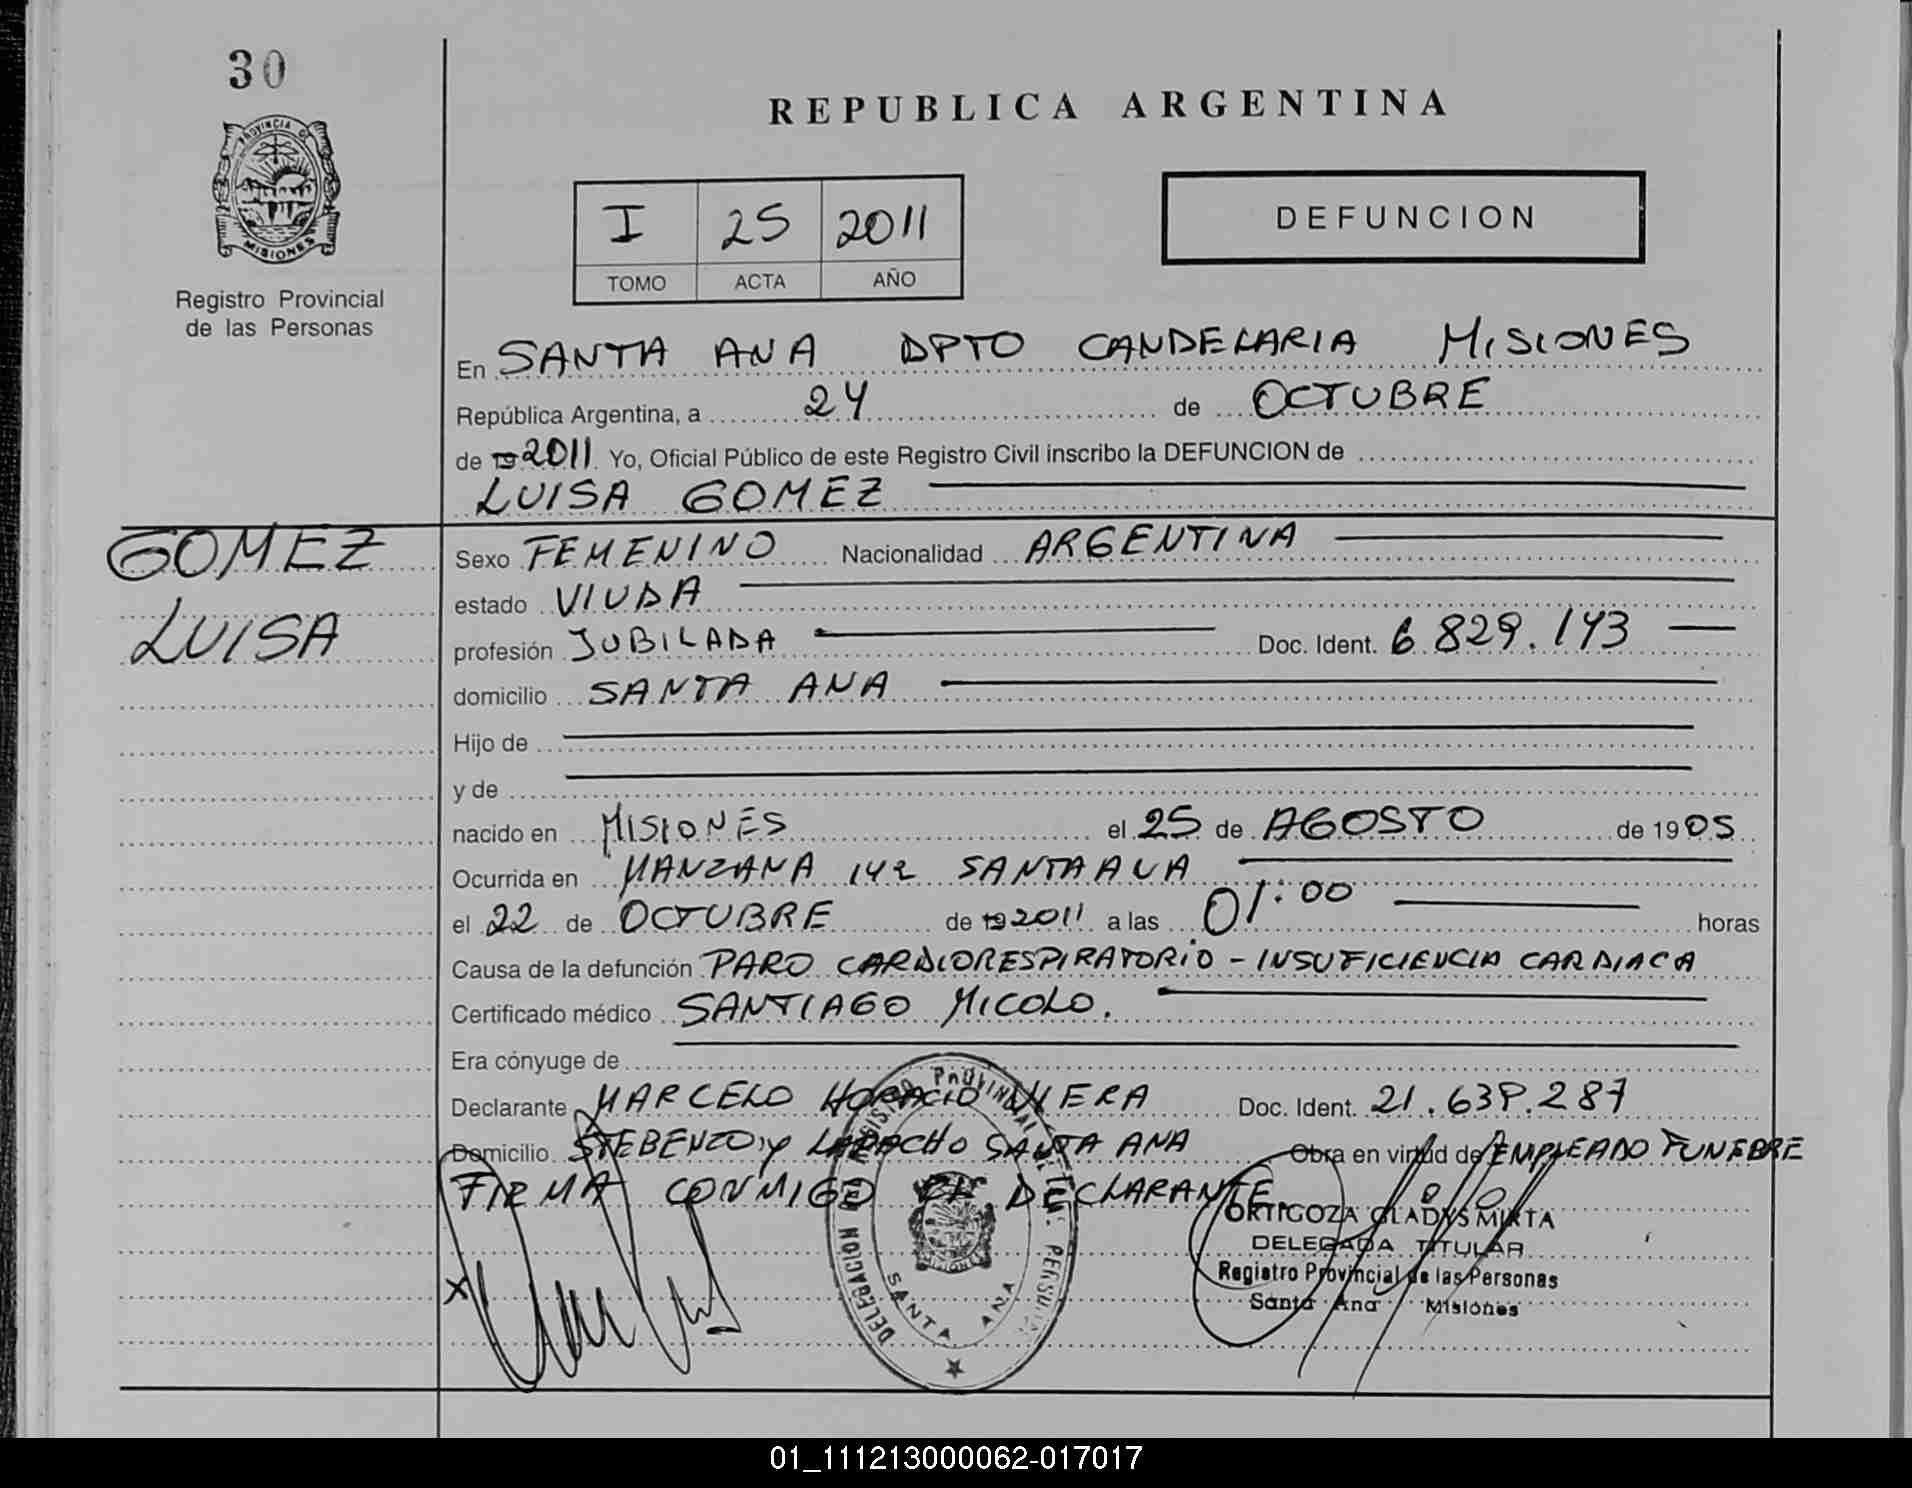 30
PROVINCIA DE
MISIONES
Registro Provincial
de las Personas
REPUBLICA ARGENTINA
I 25 2011
TOMO ACTA AÑO
DEFUNCION
En SANTA ANA DPTO CANDELARIA MISIONES
República Argentina, a 24 de OCTUBRE
de 19 2011 Yo, Oficial Público de este Registro Civil inscribo la DEFUNCION de
LUISA GOMEZ
GOMEZ
LUISA
Sexo FEMENINO Nacionalidad ARGENTINA
estado VIUDA
profesión JUBILADA Doc. Ident. 6.829.143
domicilio SANTA ANA
Hijo de
y de
nacido en MISIONES el 25 de AGOSTO de 1905
Ocurrida en MANZANA 142 SANTA ANA
el 22 de OCTUBRE de 19 2011 a las 01:00 horas
Causa de la defunción PARO CARDIORESPIRATORIO - INSUFICIENCIA CARDIACA
Certificado médico SANTIAGO MICOLO.
Era cónyuge de
Declarante MARCELO HORACIO VIERA Doc. Ident. 21.639.287
Domicilio y LAPACHO SANTA ANA Obra en virtud de EMPLEADO FUNEBRE
FIRMA CONMIGO EL DECLARANTE.
X
DELEGACION DEL REGISTRO PROVINCIAL DE LAS PERSONAS
MISIONES
SANTA ANA
ORTIGOZA GLADYS MIRTA
DELEGADA TITULAR
Registro Provincial de las Personas
Santa Ana Misiones
01_111213000062-017017